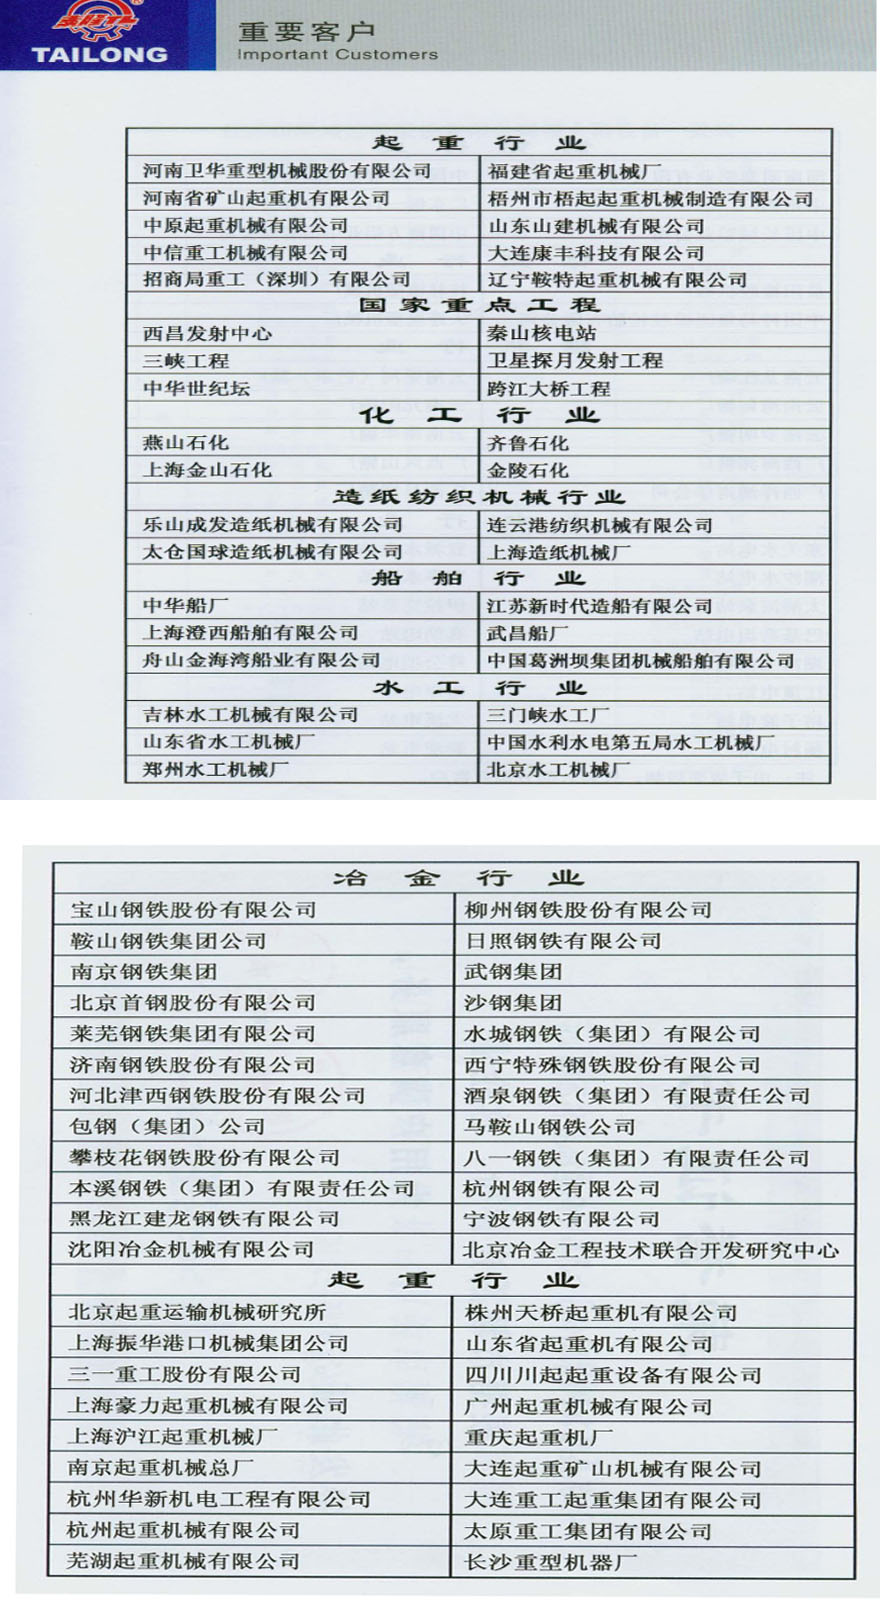 TAILONG
重要客户
Important Customers
起重行业
河南卫华重型机械股份有限公司 福建省起重机械厂
河南省矿山起重机有限公司 梧州市梧起起重机械制造有限公司
中原起重机械有限公司 山东山建机械有限公司
中信重工机械有限公司 大连康丰科技有限公司
招商局重工（深圳）有限公司 辽宁鞍特起重机械有限公司
国家重点工程
西昌发射中心 秦山核电站
三峡工程 卫星探月发射工程
中华世纪坛 跨江大桥工程
化工行业
燕山石化 齐鲁石化
上海金山石化 金陵石化
造纸纺织机械行业
乐山成发造纸机械有限公司 连云港纺织机械有限公司
太仓国球造纸机械有限公司 上海造纸机械厂
船舶行业
中华船厂 江苏新时代造船有限公司
上海澄西船舶有限公司 武昌船厂
舟山金海湾船业有限公司 中国葛洲坝集团机械船舶有限公司
水工行业
吉林水工机械有限公司 三门峡水工厂
山东省水工机械厂 中国水利水电第五局水工机械厂
郑州水工机械厂 北京水工机械厂
冶金行业
宝山钢铁股份有限公司 柳州钢铁股份有限公司
鞍山钢铁集团公司 日照钢铁有限公司
南京钢铁集团 武钢集团
北京首钢股份有限公司 沙钢集团
莱芜钢铁集团有限公司 水城钢铁（集团）有限公司
济南钢铁股份有限公司 西宁特殊钢铁股份有限公司
河北津西钢铁股份有限公司 酒泉钢铁（集团）有限责任公司
包钢（集团）公司 马鞍山钢铁公司
攀枝花钢铁股份有限公司 八一钢铁（集团）有限责任公司
本溪钢铁（集团）有限责任公司 杭州钢铁有限公司
黑龙江建龙钢铁有限公司 宁波钢铁有限公司
沈阳冶金机械有限公司 北京冶金工程技术联合开发研究中心
起重行业
北京起重运输机械研究所 株州天桥起重机有限公司
上海振华港口机械集团公司 山东省起重机有限公司
三一重工股份有限公司 四川川起起重设备有限公司
上海豪力起重机械有限公司 广州起重机械有限公司
上海沪江起重机械厂 重庆起重机厂
南京起重机械总厂 大连起重矿山机械有限公司
杭州华新机电工程有限公司 大连重工起重集团有限公司
杭州起重机械有限公司 太原重工集团有限公司
芜湖起重机械有限公司 长沙重型机器厂